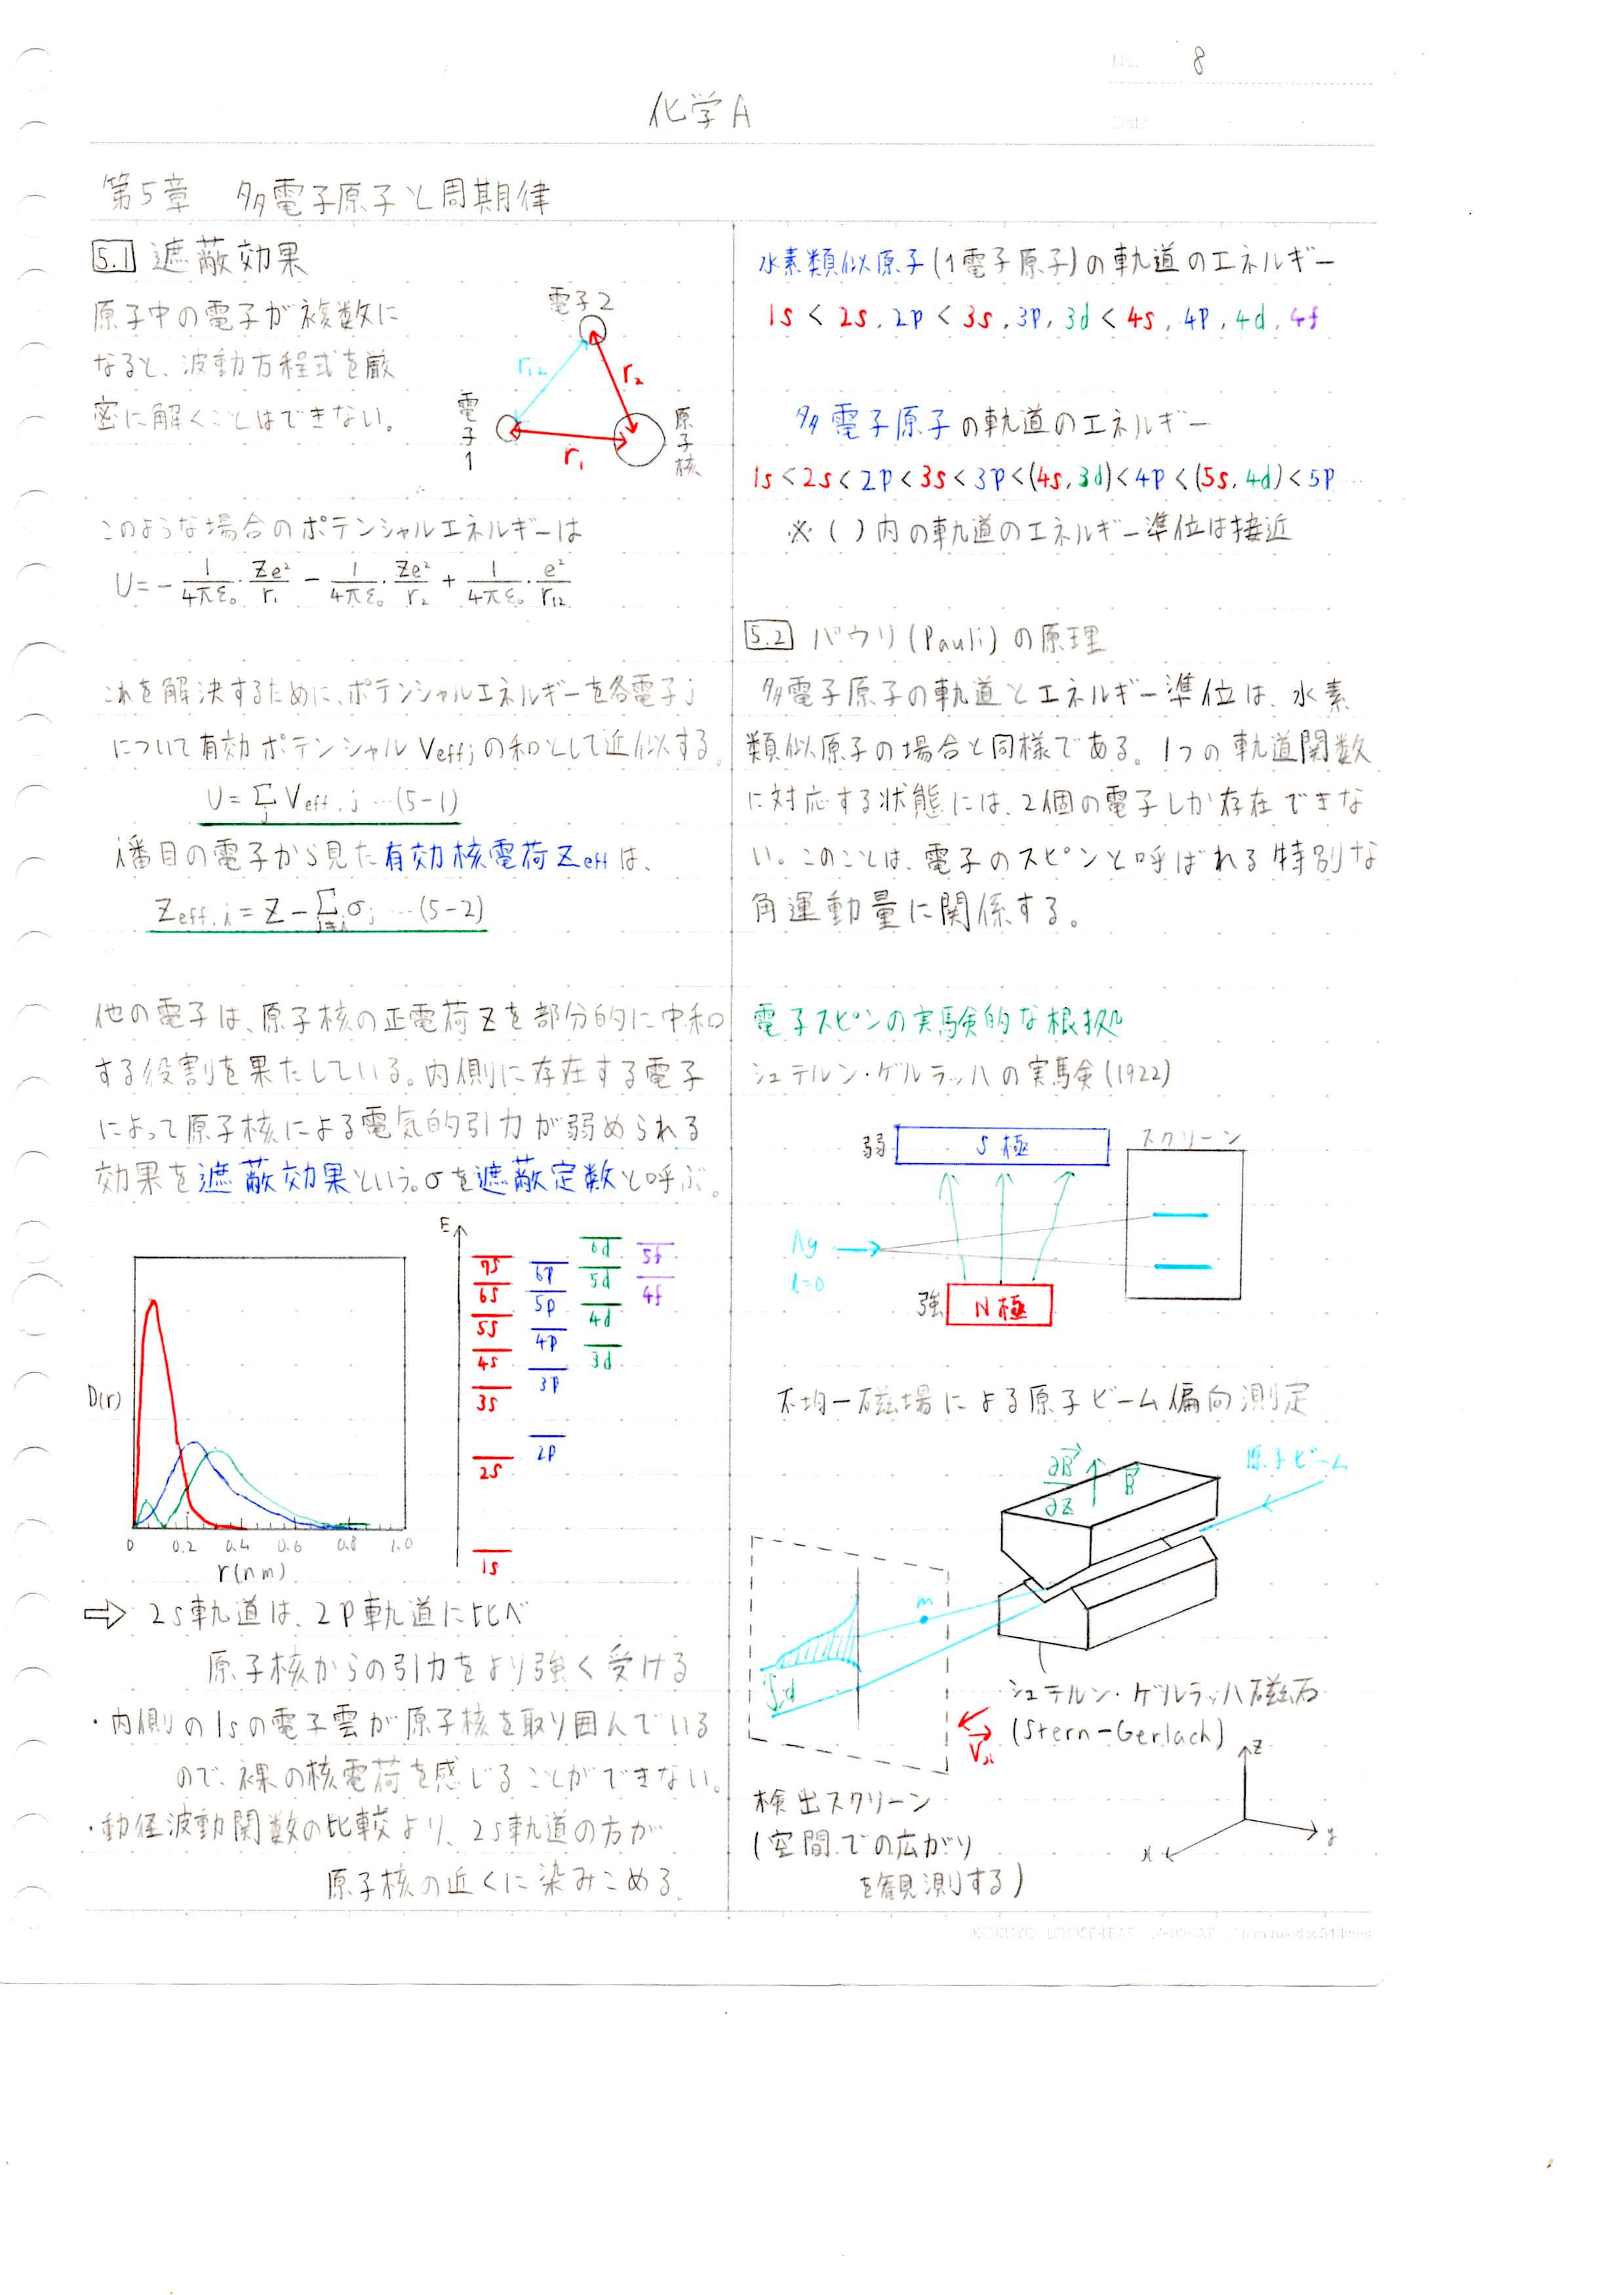 No. 8
化学A
Date
第5章 多電子原子と周期律
5.1 遮蔽効果
原子中の電子が複数に
なると、波動方程式を厳
密に解くことはできない。
電子2
r₁₂
r₂
電子1
r₁
原子核
このような場合のポテンシャルエネルギーは
U=-1/4πε₀・Ze²/r₁ - 1/4πε₀・Ze²/r₂ + 1/4πε₀・e²/r₁₂
これを解決するために、ポテンシャルエネルギーを各電子j
について有効ポテンシャルVeffjの和として近似する。
U=Σj Veff,j …(5-1)
i番目の電子から見た有効核電荷Zeffは、
Zeff,i=Z-Σj≠i σj …(5-2)
他の電子は、原子核の正電荷Zを部分的に中和
する役割を果たしている。内側に存在する電子
によって原子核による電気的引力が弱められる
効果を遮蔽効果という。σを遮蔽定数と呼ぶ。
D(r)
0 0.2 0.4 0.6 0.8 1.0
r(nm)
E
6d
5f
7s
6p
5d
6s
5p
4f
5s
4d
4p
4s
3d
3p
3s
2p
2s
1s
⇨ 2s軌道は、2p軌道に比べ
原子核からの引力をより強く受ける
・内側の1sの電子雲が原子核を取り囲んでいる
ので、裸の核電荷を感じることができない。
・動径波動関数の比較より、2s軌道の方が
原子核の近くに染みこめる。
水素類似原子(1電子原子)の軌道のエネルギー
1s < 2s, 2p < 3s, 3p, 3d < 4s, 4p, 4d, 4f
多電子原子の軌道のエネルギー
1s<2s<2p<3s<3p<(4s,3d)<4p<(5s,4d)<5p…
※( )内の軌道のエネルギー準位は接近
5.2 パウリ(Pauli)の原理
多電子原子の軌道とエネルギー準位は、水素
類似原子の場合と同様である。1つの軌道関数
に対応する状態には、2個の電子しか存在できな
い。このことは、電子のスピンと呼ばれる特別な
角運動量に関係する。
電子スピンの実験的な根拠
シュテルン・ゲルラッハの実験(1922)
弱
S極
スクリーン
Ag
l=0
強
N極
不均一磁場による原子ビーム偏向測定
∂B/∂Z
B
原子ビーム
m
d
シュテルン・ゲルラッハ磁石
(Stern-Gerlach)
Vx
z
y
x
検出スクリーン
(空間での広がり
を観測する)
KOKUYO LOOSE-LEAF